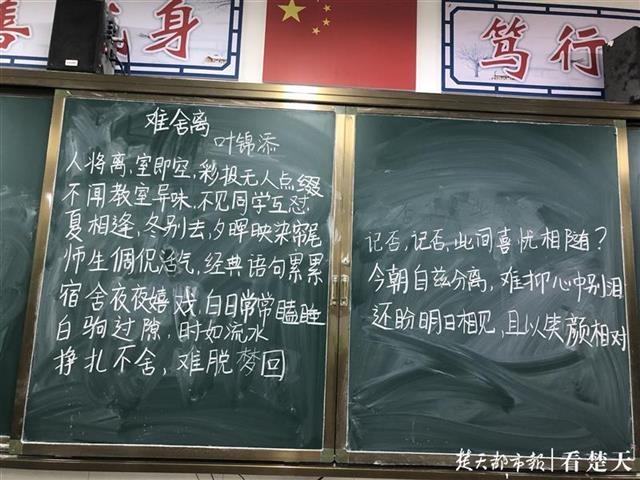 善
身
笃行
难舍离
叶锦添
人将离,室即空,彩投无人点缀
不闻教室异味,不见同学互怼
夏相逢,冬别去,夕晖映染帘尾
师生倜侃活气,经典语句累累
宿舍夜夜嬉戏,白日常常瞌睡
白驹过隙,时如流水
挣扎不舍,难脱梦回
记否,记否,此间喜忧相随?
今朝自兹分离,难抑心中别泪
还盼明日相见,且以笑颜相对
楚天都市报 看楚天